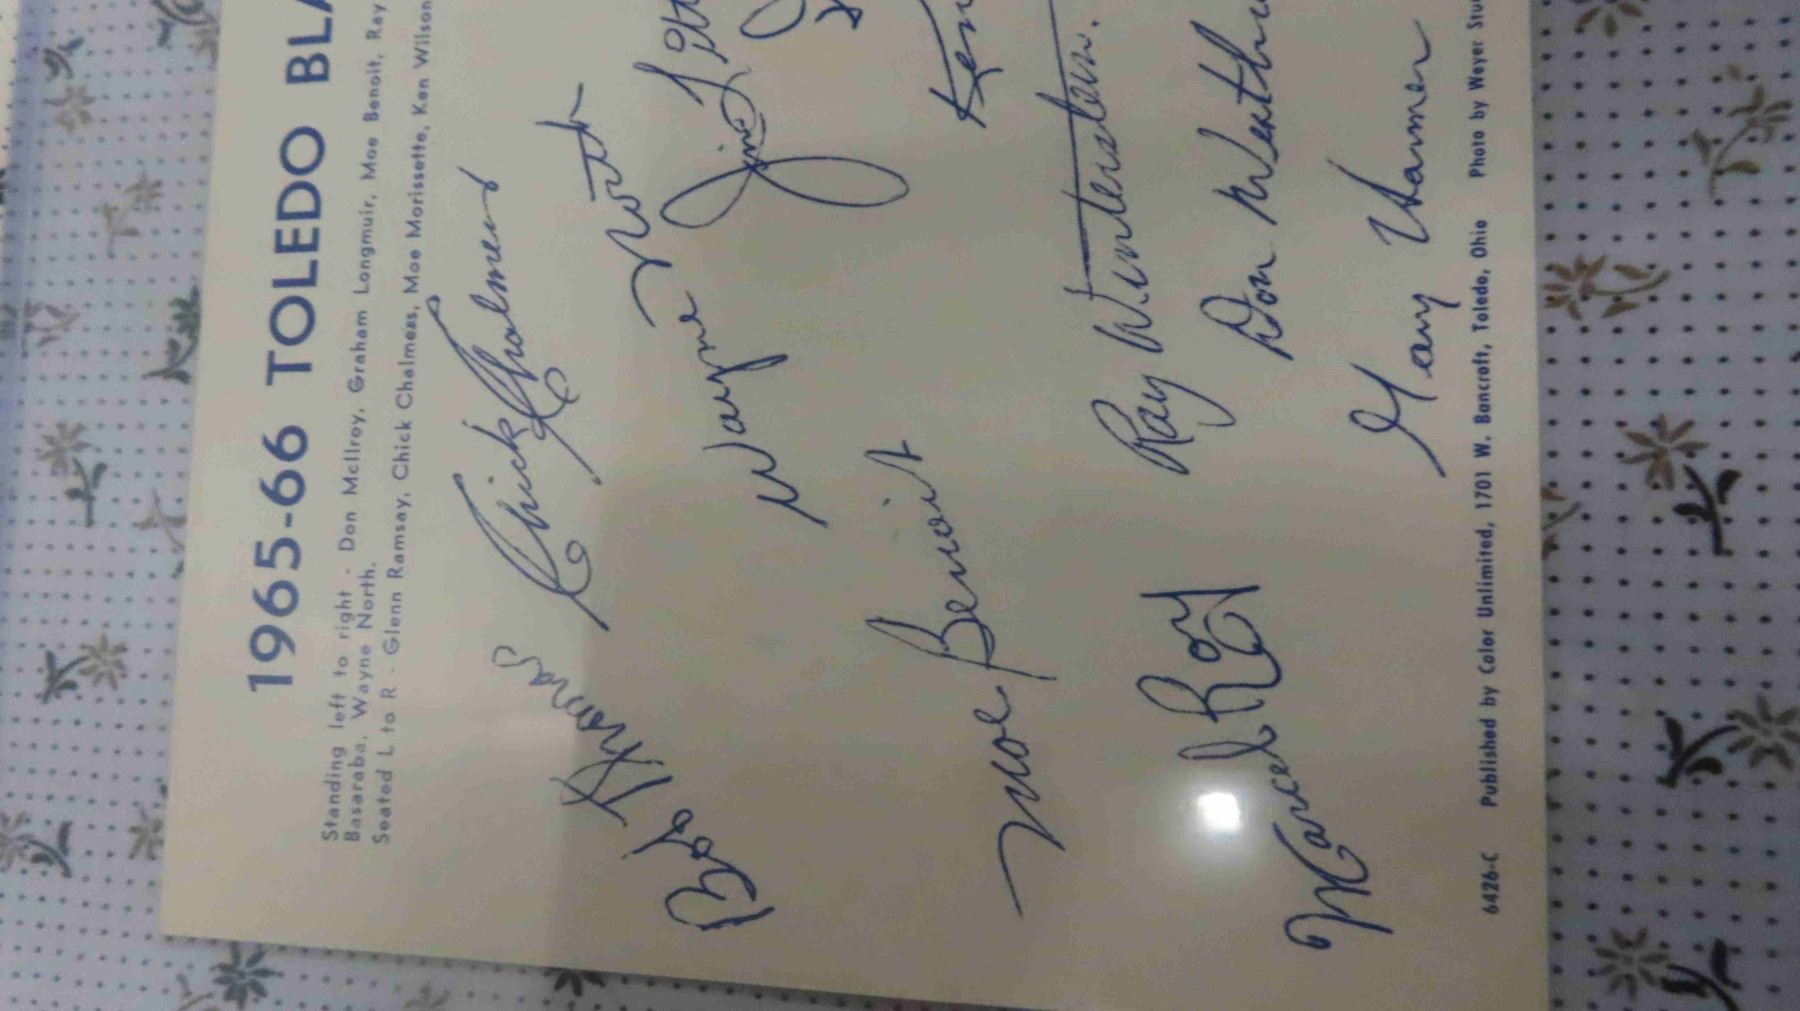 1965-66 TOLEDO BLA
Standing left to right - Don McIlroy, Graham Longmuir, Moe Benoit, Ray
Basaraba, Wayne North.
Seated L to R - Glenn Ramsay, Chick Chalmers, Moe Morissette, Ken Wilson
Bob Thomas Chick Chalmers
Wayne North
Jim
Moe Benoit
Ken
Ray
Marcel Roy
Don
Gary
6426-C Published by Color Unlimited, 1701 W. Bancroft, Toledo, Ohio Photo by Weyer Stu